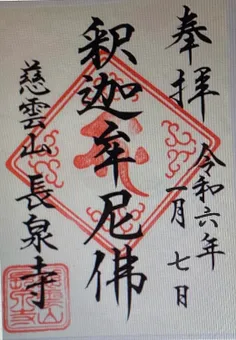 奉拝
令和六年
一月七日
釈迦牟尼佛
慈雲山
長泉寺